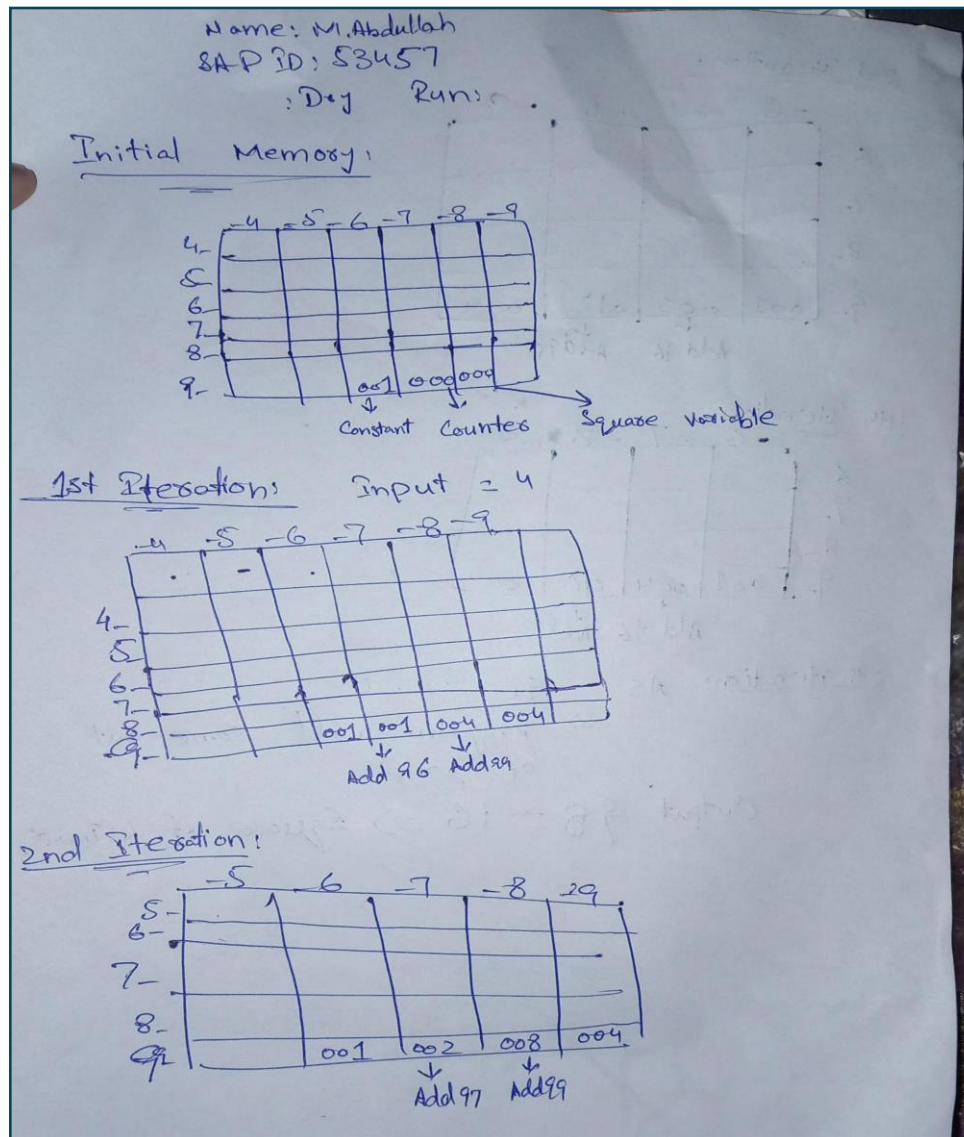 Name: M.Abdullah
SAP ID: 53457
:Dry Run:
Initial Memory:
-4 -5 -6 -7 -8 -9
4-
5-
6-
7-
8-
9- 001 000 000
Constant Counter Square variable
1st Iteration: Input = 4
-4 -5 -6 -7 -8 -9
4-
5-
6-
7-
8- 001 001 004 004
9-
Add 96 Add 99
2nd Iteration:
-5 -6 -7 -8 -9
5-
6-
7-
8-
9- 001 002 008 004
Add 97 Add 99